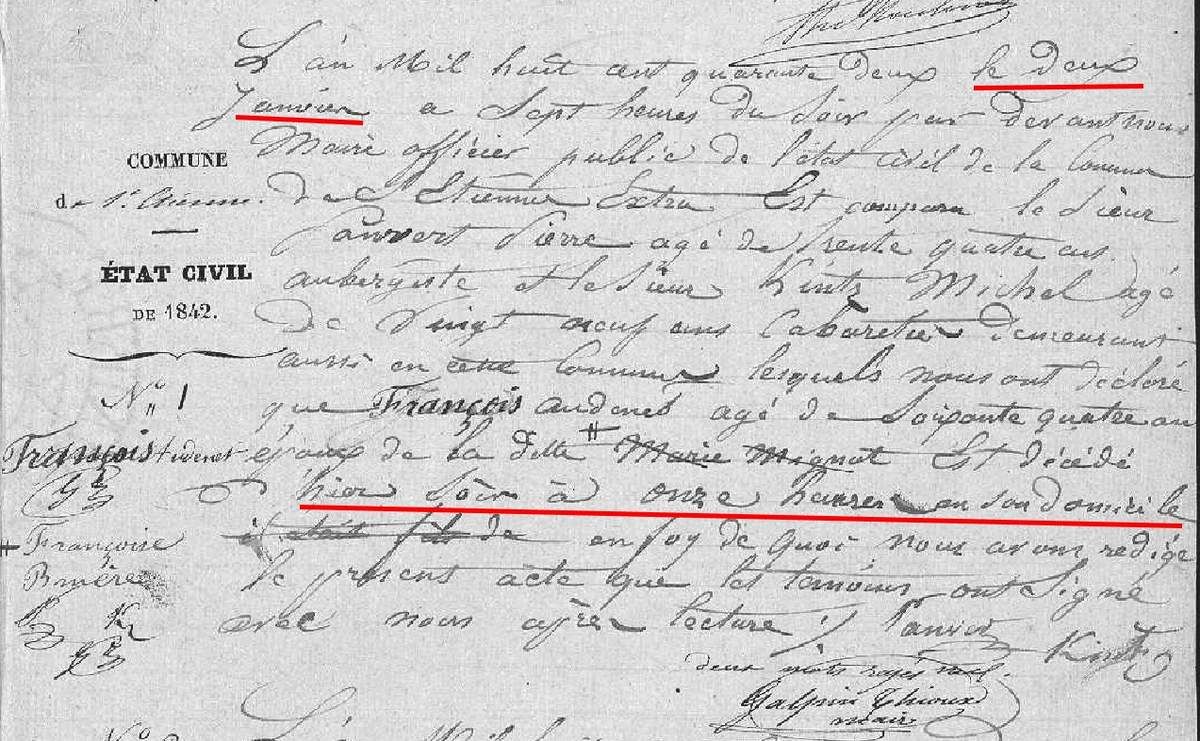 L'an Mil huit cent quarante deux le deux
Janvier a Sept heures du Soir par devant nous
Maire officier public de l'état civil de la Commune
COMMUNE
de St. Etienne.
de St Etienne Extra Est comparu le Sieur
Janvert Pierre agé de trente quatre ans
ÉTAT CIVIL
DE 1842.
aubergiste et le Sieur Kintz Michel agé
de Vingt neuf ans Cabaretier demeurant
aussi en cette Commune lesquels nous ont déclaré
No 1
que François audenet agé de Soixante quatre an
François audenet
époux de la ditte # Marie Mignot Est décédé
hier Soir à onze heures en son domicile
+ Françoise
Bruère
de en foy de quoi nous avons redigé
le présent acte que les temoins ont Signé
avec nous après lecture
Kintz
deux mots rayés nul.
Galpin Thioux
mair
No
L'an Mil